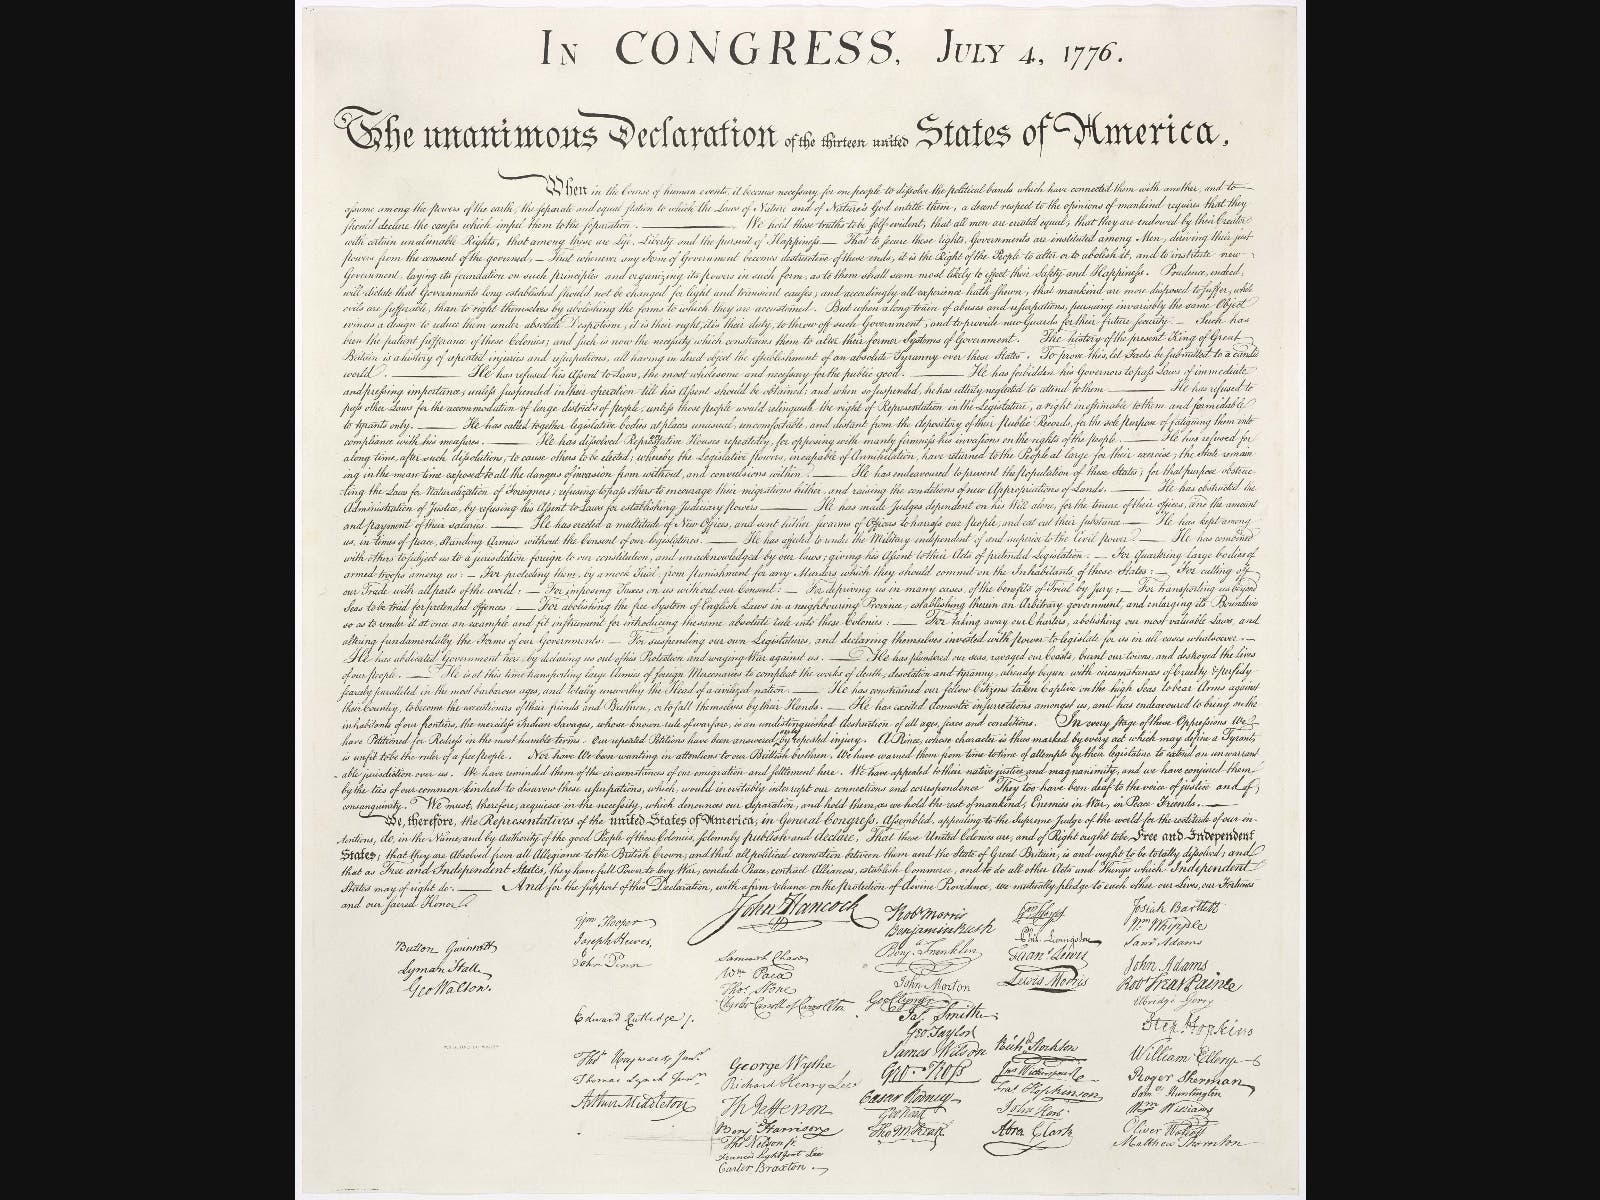 In CONGRESS, July 4, 1776.
The unanimous Declaration of the thirteen united States of America,
When in the Course of human events, it becomes necessary for one people to dissolve the political bands which have connected them with another, and to
assume among the powers of the earth, the separate and equal station to which the Laws of Nature and of Nature's God entitle them, a decent respect to the opinions of mankind requires that they
should declare the causes which impel them to the separation. — We hold these truths to be self-evident, that all men are created equal, that they are endowed by their Creator
with certain unalienable Rights, that among these are Life, Liberty and the pursuit of Happiness. — That to secure these rights, Governments are instituted among Men, deriving their just
powers from the consent of the governed, — That whenever any Form of Government becomes destructive of these ends, it is the Right of the People to alter or to abolish it, and to institute new
Government, laying its foundation on such principles and organizing its powers in such form, as to them shall seem most likely to effect their Safety and Happiness. Prudence, indeed,
will dictate that Governments long established should not be changed for light and transient causes; and accordingly all experience hath shewn, that mankind are more disposed to suffer, while
evils are sufferable, than to right themselves by abolishing the forms to which they are accustomed. But when a long train of abuses and usurpations, pursuing invariably the same Object
evinces a design to reduce them under absolute Despotism, it is their right, it is their duty, to throw off such Government, and to provide new Guards for their future security. — Such has
been the patient sufferance of these Colonies; and such is now the necessity which constrains them to alter their former Systems of Government. The history of the present King of Great
Britain is a history of repeated injuries and usurpations, all having in direct object the establishment of an absolute Tyranny over these States. To prove this, let Facts be submitted to a candid
world. — He has refused his Assent to Laws, the most wholesome and necessary for the public good. — He has forbidden his Governors to pass Laws of immediate
and pressing importance, unless suspended in their operation till his Assent should be obtained; and when so suspended, he has utterly neglected to attend to them. — He has refused to
pass other Laws for the accommodation of large districts of people, unless those people would relinquish the right of Representation in the Legislature, a right inestimable to them and formidable
to tyrants only. — He has called together legislative bodies at places unusual, uncomfortable, and distant from the depository of their Public Records, for the sole purpose of fatiguing them into
compliance with his measures. — He has dissolved Representative Houses repeatedly, for opposing with manly firmness his invasions on the rights of the people. — He has refused for
a long time, after such dissolutions, to cause others to be elected; whereby the Legislative powers, incapable of Annihilation, have returned to the People at large for their exercise; the State remain
ing in the mean time exposed to all the dangers of invasion from without, and convulsions within. — He has endeavoured to prevent the population of these States; for that purpose obstruc
ting the Laws for Naturalization of Foreigners; refusing to pass others to encourage their migrations hither, and raising the conditions of new Appropriations of Lands. — He has obstructed the
Administration of Justice, by refusing his Assent to Laws for establishing Judiciary powers. — He has made Judges dependent on his Will alone, for the tenure of their offices, and the amount
and payment of their salaries. — He has erected a multitude of New Offices, and sent hither swarms of Officers to harass our people, and eat out their substance. — He has kept among
us, in times of peace, Standing Armies without the Consent of our legislatures. — He has affected to render the Military independent of and superior to the Civil power. — He has combined
with others to subject us to a jurisdiction foreign to our constitution, and unacknowledged by our laws; giving his Assent to their Acts of pretended Legislation: — For Quartering large bodies of
armed troops among us: — For protecting them, by a mock Trial, from punishment for any Murders which they should commit on the Inhabitants of these States: — For cutting off
our Trade with all parts of the world: — For imposing Taxes on us without our Consent: — For depriving us in many cases, of the benefits of Trial by Jury: — For transporting us beyond
Seas to be tried for pretended offences — For abolishing the free System of English Laws in a neighbouring Province, establishing therein an Arbitrary government, and enlarging its Boundaries
so as to render it at once an example and fit instrument for introducing the same absolute rule into these Colonies: — For taking away our Charters, abolishing our most valuable Laws, and
altering fundamentally the Forms of our Governments: — For suspending our own Legislatures, and declaring themselves invested with power to legislate for us in all cases whatsoever. —
He has abdicated Government here, by declaring us out of his Protection and waging War against us. — He has plundered our seas, ravaged our Coasts, burnt our towns, and destroyed the lives
of our people. — He is at this time transporting large Armies of foreign Mercenaries to compleat the works of death, desolation and tyranny, already begun with circumstances of Cruelty & perfidy
scarcely paralleled in the most barbarous ages, and totally unworthy the Head of a civilized nation. — He has constrained our fellow Citizens taken Captive on the high Seas to bear Arms against
their Country, to become the executioners of their friends and Brethren, or to fall themselves by their Hands. — He has excited domestic insurrections amongst us, and has endeavoured to bring on the
inhabitants of our frontiers, the merciless Indian Savages, whose known rule of warfare, is an undistinguished destruction of all ages, sexes and conditions. In every stage of these Oppressions We
have Petitioned for Redress in the most humble terms: Our repeated Petitions have been answered only by repeated injury. A Prince, whose character is thus marked by every act which may define a Tyrant,
is unfit to be the ruler of a free people. Nor have We been wanting in attentions to our Brittish brethren. We have warned them from time to time of attempts by their legislature to extend an unwarrant
able jurisdiction over us. We have reminded them of the circumstances of our emigration and settlement here. We have appealed to their native justice and magnanimity, and we have conjured them
by the ties of our common kindred to disavow these usurpations, which, would inevitably interrupt our connections and correspondence. They too have been deaf to the voice of justice and of
consanguinity. We must, therefore, acquiesce in the necessity, which denounces our Separation, and hold them, as we hold the rest of mankind, Enemies in War, in Peace Friends. —
We, therefore, the Representatives of the united States of America, in General Congress, Assembled, appealing to the Supreme Judge of the world for the rectitude of our in-
tentions, do, in the Name, and by Authority of the good People of these Colonies, solemnly publish and declare, That these United Colonies are, and of Right ought to be Free and Independent
States; that they are Absolved from all Allegiance to the British Crown, and that all political connection between them and the State of Great Britain, is and ought to be totally dissolved; and
that as Free and Independent States, they have full Power to levy War, conclude Peace, contract Alliances, establish Commerce, and to do all other Acts and Things which Independent
States may of right do. — And for the support of this Declaration, with a firm reliance on the protection of divine Providence, we mutually pledge to each other our Lives, our Fortunes
and our sacred Honor.
Button Gwinnett
Lyman Hall
Geo Walton.
Wm Hooper
Joseph Hewes,
John Penn
Edward Rutledge
Thos Heyward Junr
Thomas Lynch Junr
Arthur Middleton
John Hancock
Samuel Chase
Wm Paca
Thos Stone
Charles Carroll of Carrollton
George Wythe
Richard Henry Lee
Th Jefferson
Benj Harrison
Thos Nelson jr
Francis Lightfoot Lee
Carter Braxton
Robt Morris
Benjamin Rush
Benj. Franklin
John Morton
Geo Clymer
Jas Smith
Geo Taylor
James Wilson
Geo. Ross
Caesar Rodney
Geo Read
Tho M:Kean
Phil. Livingston
Frans Lewis
Lewis Morris
Richd Stockton
Jno Witherspoon
Fras Hopkinson
John Hart
Abra Clark
Josiah Bartlett
Wm Whipple
Saml Adams
John Adams
Robt Treat Paine
Elbridge Gerry
Step Hopkins
William Ellery
Roger Sherman
Saml Huntington
Wm Williams
Oliver Wolcott
Matthew Thornton